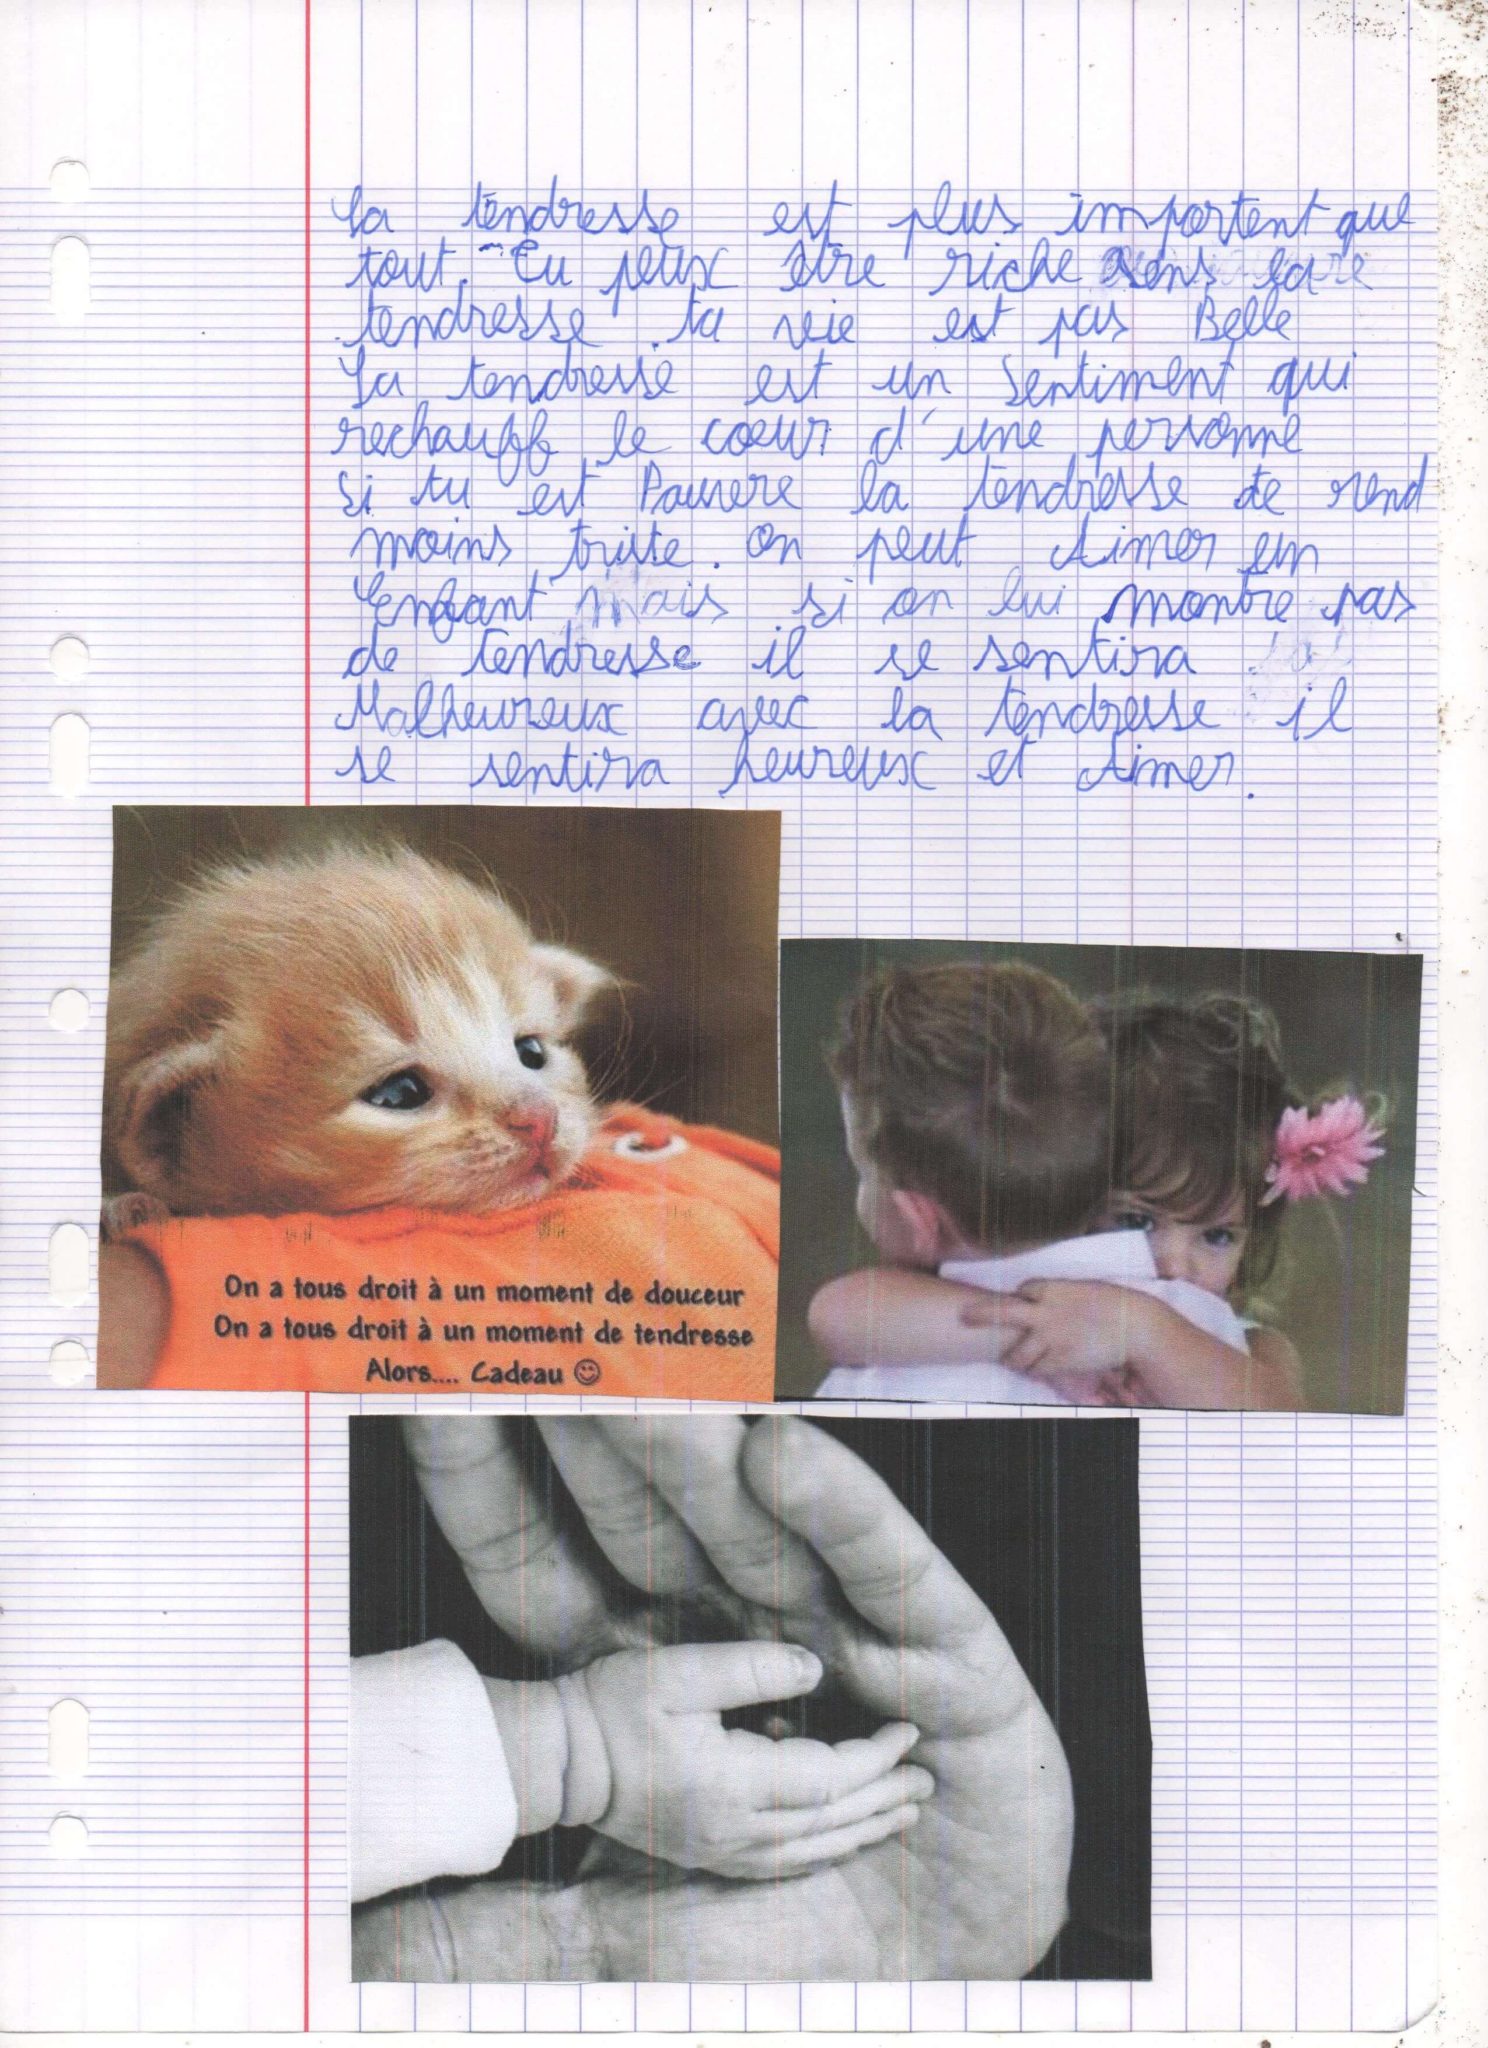 La tendresse est plus importent que
tout. Tu peux être riche sens la
tendresse ta vie est pas Belle
La tendresse est un sentiment qui
rechauff le coeur d'une personne
si tu est Pauvere la tendresse te rend
moins triste. On peut Aimer un
Enfant mais si on lui montre pas
de tendresse il se sentira
Malheureux avec la tendresse il
se sentira heureux et Aimer.
On a tous droit à un moment de douceur
On a tous droit à un moment de tendresse
Alors.... Cadeau ☺